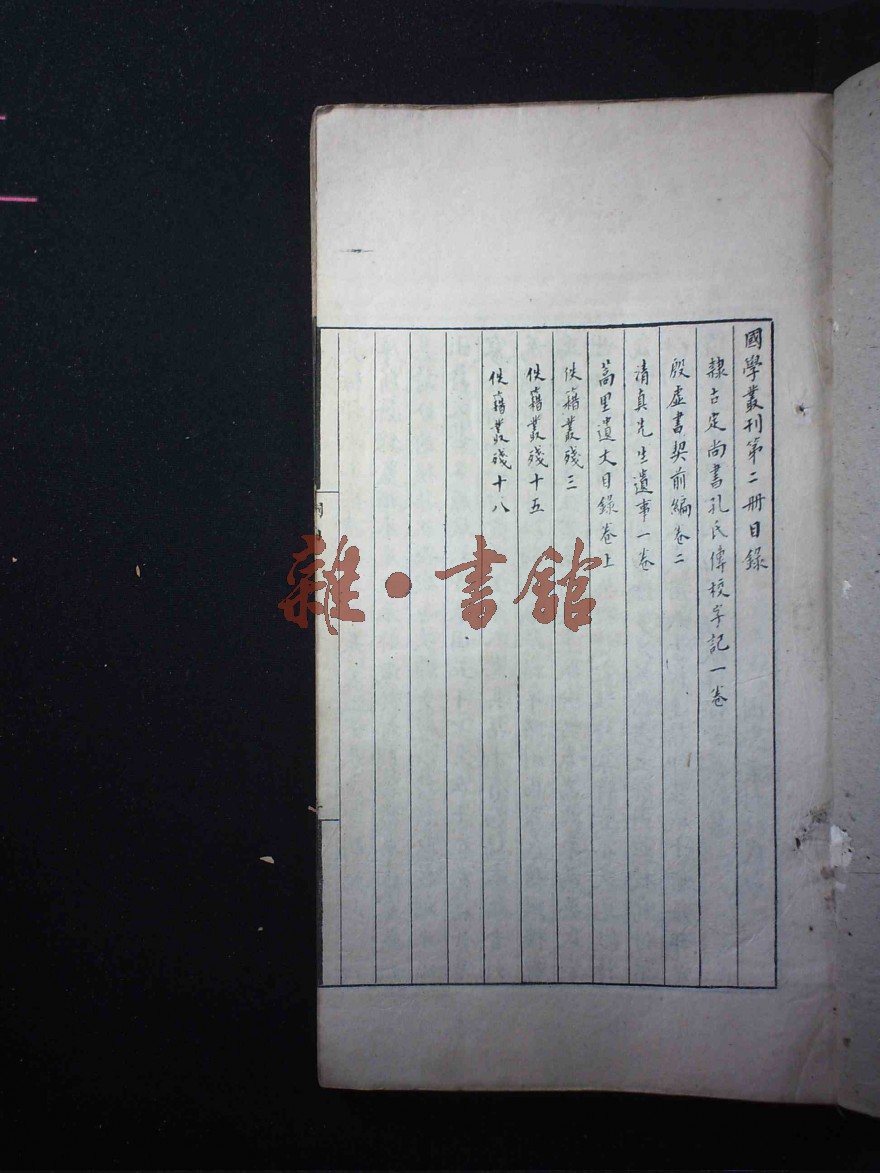 國學叢刊第二冊目錄
隸古定尚書孔氏傳校字記一卷
殷虛書契前編卷二
清真先生遺事一卷
蒿里遺文目錄卷上
佚籍叢殘三
佚籍叢殘十五
佚籍叢殘十八
雜·書館